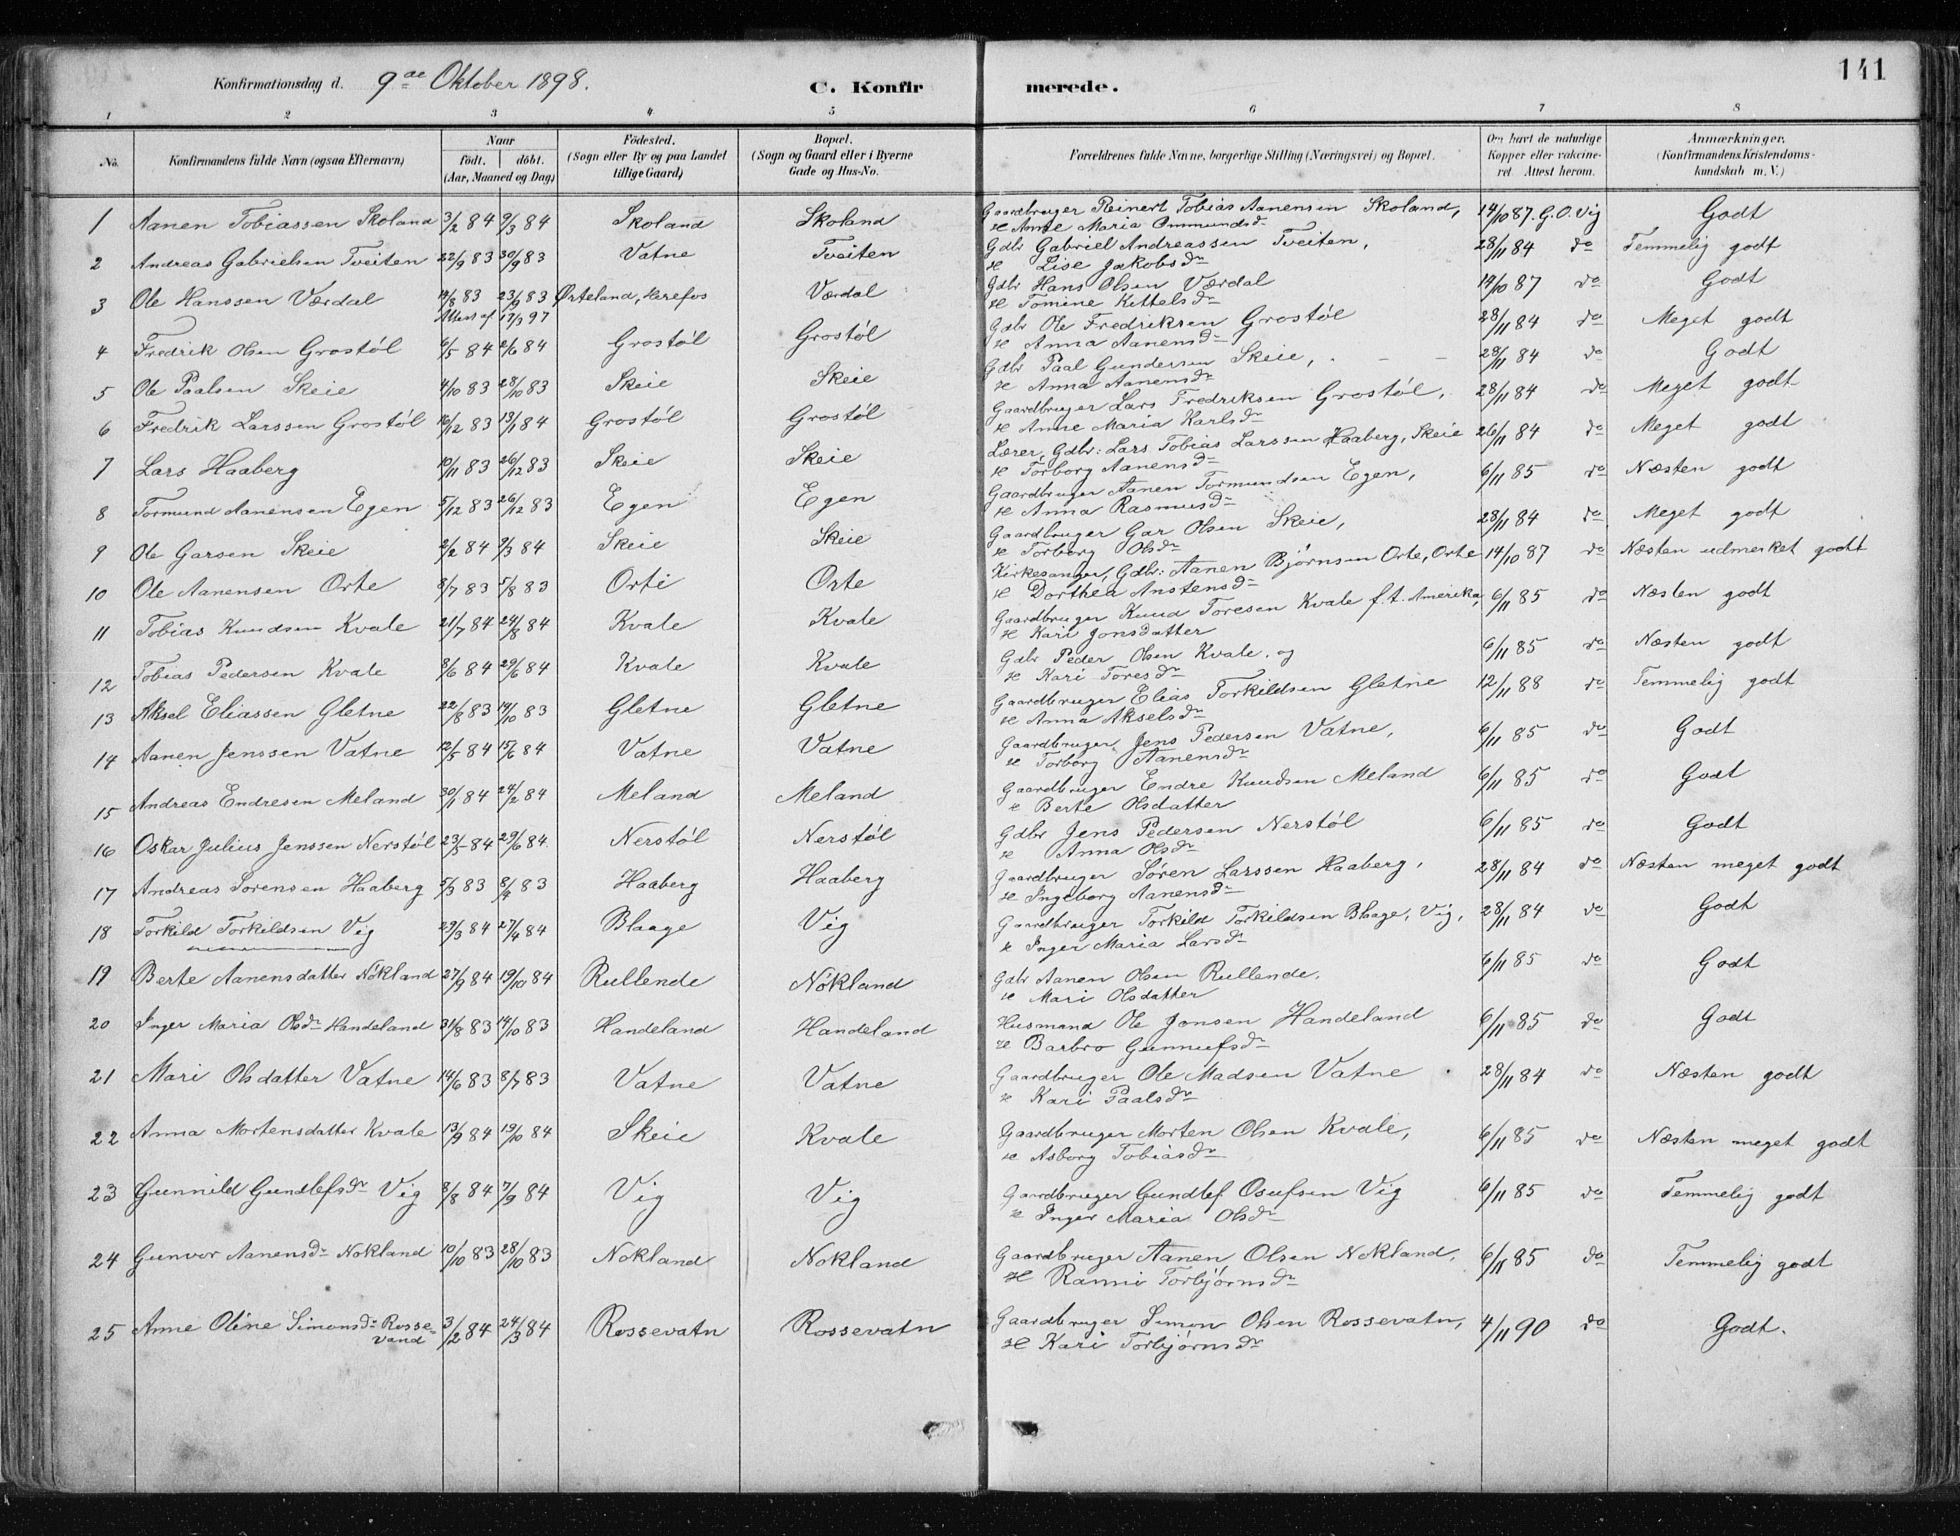 141
Konfirmationsdag d. 9de Oktober 1898. C. Konfirmerede.
1 2 3 4 5 6 7 8
No. Konfirmandens fulde Navn (ogsaa Efternavn) Naar født. døbt. (Aar, Maaned og Dag) Fødested. (Sogn eller By og paa Landet tillige Gaard) Bopæl. (Sogn og Gaard eller i Byerne Gade og Hus-No. Forældrenes fulde Navne, borgerlige Stilling (Næringsvei) og Bopæl. Om havt de naturlige Kopper eller vakcineret. Attest herom. Anmærkninger. (Konfirmandens Kristendomskundskab m. V.)
1 Aanen Tobiassen Skoland 3/2 84 9/3 84 Skoland Skoland Gaardbruger Reinert Tobias Aanensen Skoland, 14/10 87. G.O. Vig Godt
& Anne Maria Ommundsdr
2 Andreas Gabrielsen Tveiten 22/9 83 30/9 83 Vatne Tveiten Gdbr Gabriel Andreassen Tveiten, 28/11 84 do Temmelig godt
& Lise Jakobsdr
3 Ole Hanssen Værdal 14/8 83 23/9 83 Ørteland, Herefos Værdal Gdbr Hans Olsen Værdal 14/10 87 do Godt
Attest af 17/3 97 & Tomine Kittelsdr
4 Fredrik Olsen Grostøl 6/5 84 2/6 84 Grostøl Grostøl Gdbr Ole Fredriksen Grostøl 28/11 84 do Meget godt
& Anna Aanensdr
5 Ole Paalsen Skeie 4/10 83 28/10 83 Skeie Skeie Gdbr Paal Gundersen Skeie, 28/11 84 do Godt
& Anna Aanensdr
6 Fredrik Larssen Grostøl 16/12 83 13/1 84 Grostøl Grostøl Gaardbruger Lars Fredriksen Grostøl, 28/11 84 do Meget godt
& Anne Maria Karlsdr
7 Lars Haaberg 10/11 83 26/12 83 Skeie Skeie Lærer, Gdbr: Lars Tobias Larssen Haaberg, Skeie 26/11 84 do Meget godt
& Torborg Aanensdr
8 Tormund Aanensen Egen 5/12 83 26/12 83 Egen Egen Gaardbruger Aanen Tormundsen Egen, 6/11 85 do Næsten godt
& Anna Rasmusdr
9 Ole Garsen Skeie 2/2 84 9/3 84 Skeie Skeie Gaardbruger Gar Olsen Skeie, 28/11 84 do Meget godt
& Torborg Olsdr
10 Ole Aanensen Orte 8/7 83 5/8 83 Orti Orte Kirkesanger, Gdbr: Aanen Bjørnsen Orte, Orte 14/10 87 do Næsten udmerket godt
& Dorthea Anstensdr
11 Tobias Knudsen Kvale 21/7 84 24/8 84 Kvale Kvale Gaardbruger Knud Toresen Kvale f.t. Amerika, 6/11 85 do Næsten godt
& Kari Jonsdatter
12 Tobias Pedersen Kvale 8/6 84 29/6 84 Kvale Kvale Gdbr Peder Olsen Kvale. og 6/11 85 do Næsten godt
& Kari Toresdr
13 Aksel Eliassen Gletne 22/8 83 14/10 83 Gletne Gletne Gaardbruger Elias Torkildsen Gletne 12/11 88 do Temmelig godt
& Anna Akselsdr
14 Aanen Jenssen Vatne 12/5 84 15/6 84 Vatne Vatne Gaardbruger Jens Pedersen Vatne, 6/11 85 do Godt
& Torborg Aanensdr
15 Andreas Endresen Meland 30/1 84 24/2 84 Meland Meland Gaardbruger Endre Knudsen Meland 6/11 85 do Godt
& Berte Olsdatter
16 Oskar Julius Jenssen Nerstøl 23/5 84 29/6 84. Nerstøl Nerstøl Gdbr Jens Pedersen Nerstøl 6/11 85 do Godt
& Anna Olsdr
17 Andreas Sørensen Haaberg 5/3 83 8/4 83 Haaberg Haaberg Gaardbruger Søren Larssen Haaberg, 28/11 84 do Næsten meget godt
& Ingeborg Aanensdr
18 Torkild Torkildsen Vig 29/3 84 27/4 84 Blaage Vig Gaardbruger Torkild Torkildsen Blaage, Vig, 28/11 84 do Godt
& Inger Maria Larsdr
19 Berte Aanensdatter Nökland 27/9 84 19/10 84 Rullende Nökland Gdbr Aanen Olsen Rullende. 6/11 85 do Godt
& Mari Olsdatter
20 Inger Maria Olsdr Handeland 31/8 83 14/10 83 Handeland Handeland Husmand Ole Jonsen Handeland 6/11 85 do Godt
& Barbro Gunnufsdr
21 Mari Olsdatter Vatne 14/6 83 8/7 83 Vatne Vatne Gaardbruger Ole Madsen Vatne 28/11 84 do Næsten godt
& Kari Paalsdr
22 Anna Mortensdatter Kvale 13/9 84 19/10 84 Skeie Kvale Gaardbruger Morten Olsen Kvale, 6/11 85 do Næsten meget godt
& Asborg Tobiasdr
23 Gunnild Gundlefsdr Vig 8/8 84 7/9 84 Vig Vig Gaardbruger Gundlef Osufsen Vig 6/11 85 do Temmelig godt
& Inger Maria Olsdr
24 Gunvor Aanensdr Nokland 10/10 83 28/10 83 Nokland Nokland Gaardbruger Aanen Olsen Nokland, 6/11 85 do Temmelig godt
& Ranni Torbjørnsdr
25 Anne Oline Simonsdr Rosse- 3/2 84 24/3 84 Rossevatn Rossevatn Gaardbruger Simon Olsen Rossevatn, 4/11 90 do Godt.
vand & Kari Torbjørnsdr